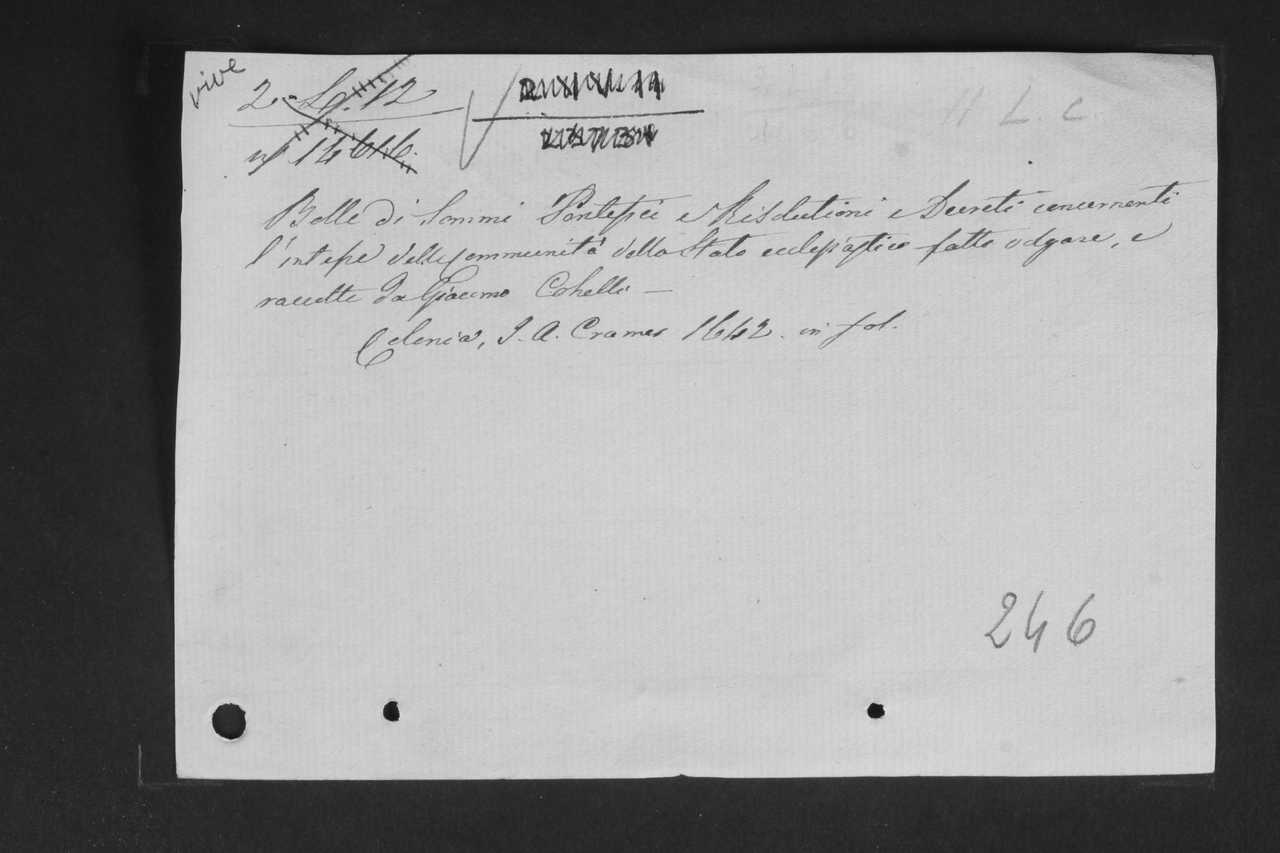 vive
2. L. 12
nº 14616.
H L. c.
Bolle di Sommi Pontefici e Risolutioni e Decreti concernenti
l'intesse delle communità dello Stato ecclesiastico fatte volgare, e
raccolte da Giacomo Cohelli —
Colonia, J. A. Cramer 1642. in fol.
246